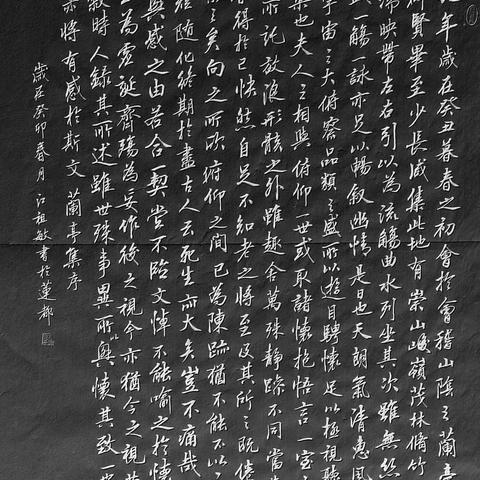 年歲在癸丑暮春之初會於會稽山陰之蘭亭
賢畢至少長咸集此地有崇山峻嶺茂林脩竹
映帶左右引以為流觴曲水列坐其次雖無絲
一觴一詠亦足以暢敘幽情是日也天朗氣清惠風
宇宙之大俯察品類之盛所以遊目騁懷足以極視聽
樂也夫人之相與俯仰一世或取諸懷抱悟言一室之
所託放浪形骸之外雖趣舍萬殊靜躁不同當其
得於己快然自足不知老之將至及其所之既倦
之矣向之所欣俯仰之間已為陳跡猶不能不以
短隨化終期於盡古人云死生亦大矣豈不痛哉
興感之由若合一契嘗不臨文悼不能喻之於懷
一為虛誕齊殤為妄作後之視今亦猶今之視昔
敘時人錄其所述雖世殊事異所以興懷其致一也
亦將有感於斯文 蘭亭集序
歲在癸卯春月 江祖敏書於蓮都